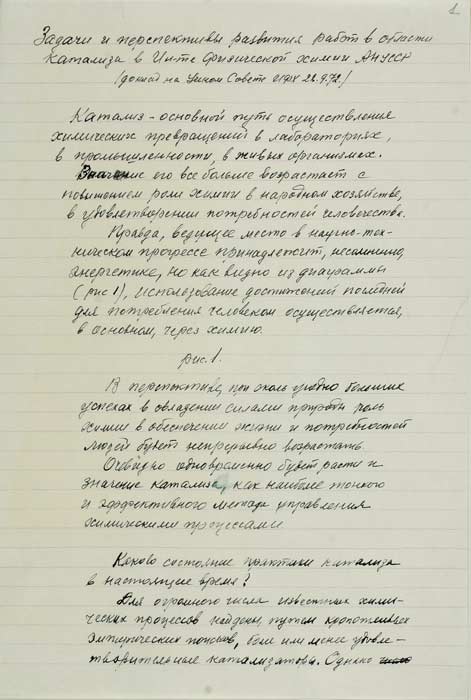 1
Задачи и перспективы развития работ в области
катализа в Ин-те Физической химии АНУССР
(доклад на Ученом Совете ИФХ 22.9.72.)
Катализ - основной путь осуществления
химических превращений в лабораториях,
в промышленности, в живых организмах.
Значение его все больше возрастает с
повышением роли химии в народном хозяйстве,
в удовлетворении потребностей человечества.
Правда, ведущее место в научно-тех-
ническом прогрессе принадлежит, несомненно,
энергетике, но как видно из диаграммы
(рис 1), использование достижений последней
для потребления человеком осуществляется,
в основном, через химию.
рис. 1.
В перспективе, при сколь угодно больших
успехах в овладении силами природы роль
химии в обеспечении жизни и потребностей
людей будет непрерывно возрастать.
Очевидно одновременно будет расти и
значение катализа, как наиболее тонкого
и эффективного метода управления
химическими процессами.
Каково состояние практики катализа
в настоящее время?
Для огромного числа известных хими-
ческих процессов найдены, путем кропотливых
эмпирических поисков, более или менее удовле-
творительные катализаторы. Однако